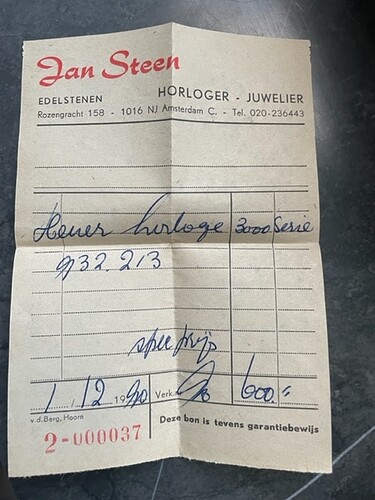 Jan Steen
EDELSTENEN HORLOGER - JUWELIER
Rozengracht 158 - 1016 NJ Amsterdam C. - Tel. 020-236443
Heuer horloge 3000 Serie
932.213
spec prijs
1/12 1990 Verk. 600.-
v.d. Berg, Hoorn
2-000037 Deze bon is tevens garantiebewijs